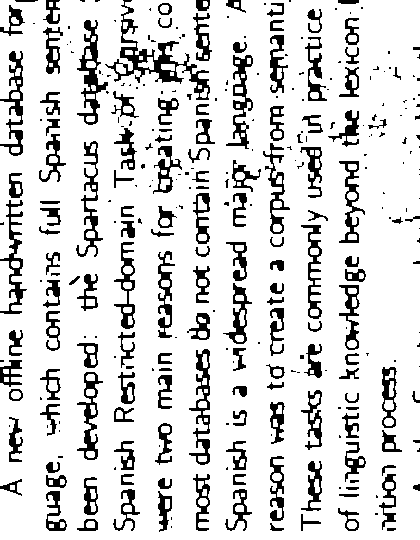 A new offline handwritten database for
guage, which contains full Spanish senten
been developed: the Spartacus database
Spanish Restricted-domain Task of Cursive
were two main reasons for creating this co
most databases do not contain Spanish sente
Spanish is a widespread major language. A
reason was to create a corpus from semanti
These tasks are commonly used in practice
of linguistic knowledge beyond the lexicon
nition process.